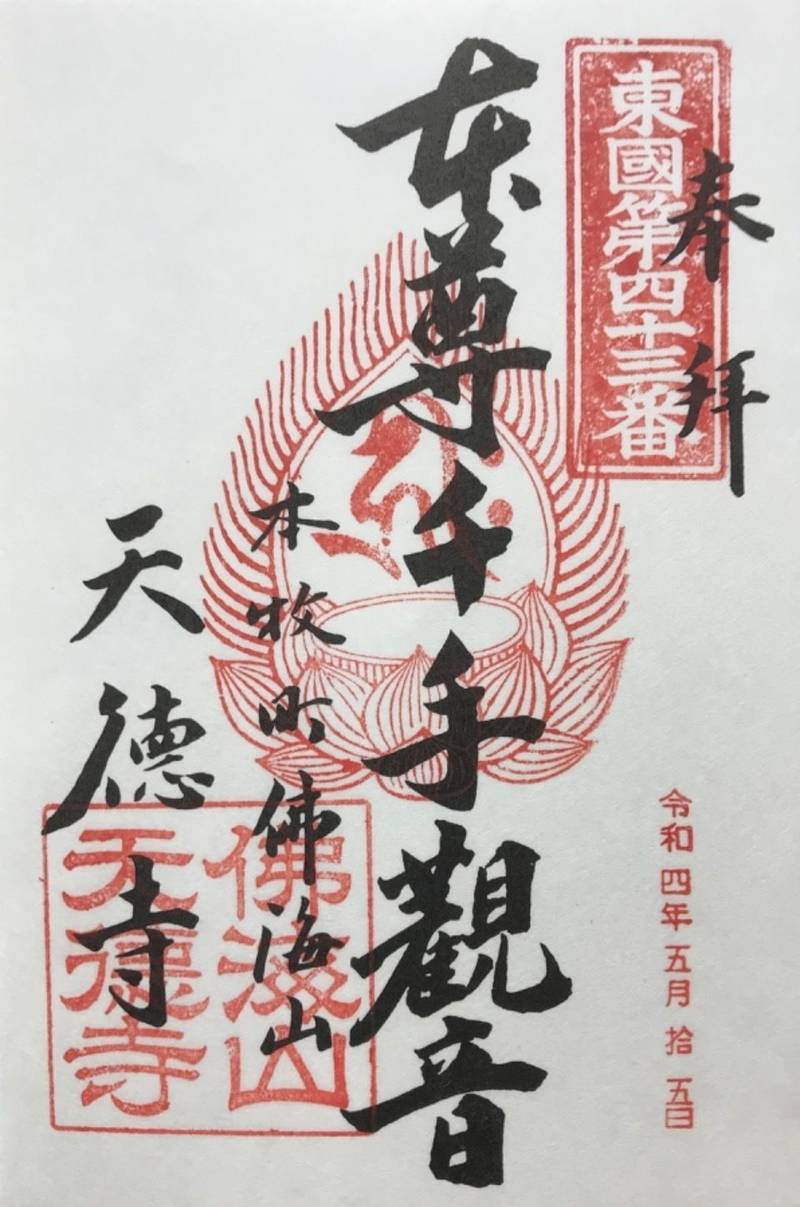 東國第四十三番
奉拝
本尊千手觀音
本牧町佛海山
天德寺
佛海山
天德寺
令和四年五月拾五日